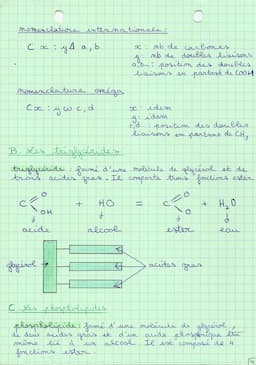 nomenclature internationale :
C x : y Δ a, b
x : nb de carbones
y : nb de doubles liaisons
a, b : position des doubles
liaisons en partant de COOH
nomenclature oméga
C x : y ω c, d
x : idem
y : idem
c, d : position des doubles
liaisons en partant de CH3
B Les triglycérides
triglycéride : formé d'une molécule de glycérol et de
trois acides gras. Il comporte trois fonctions ester
C O OH + HO = C O O + H2O
acide alcool ester eau
glycérol acides gras
C Les phospholipides
phospholipide : formé d'une molécule de glycérol,
de deux acides gras et d'un acide phosphorique
même lié à un alcool. Il est composé de 4
fonctions ester.